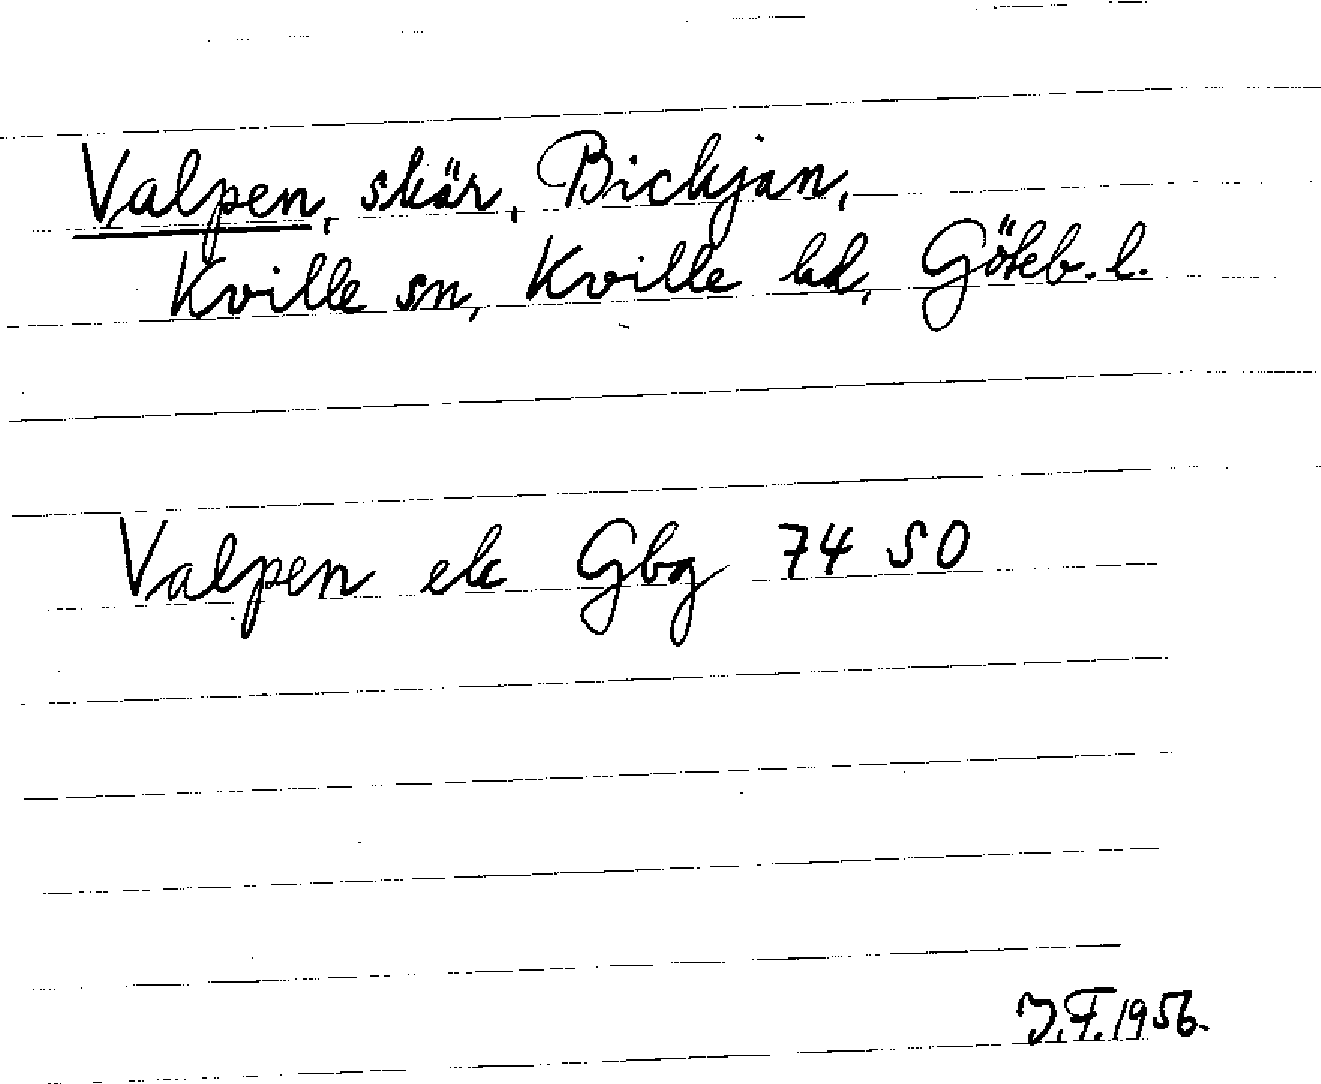 Valpen, skär, Bickjan,
Kville sn, Kville hd, Göteb. l.
Valpen ek Gbg 74 SO
J.F. 1956.